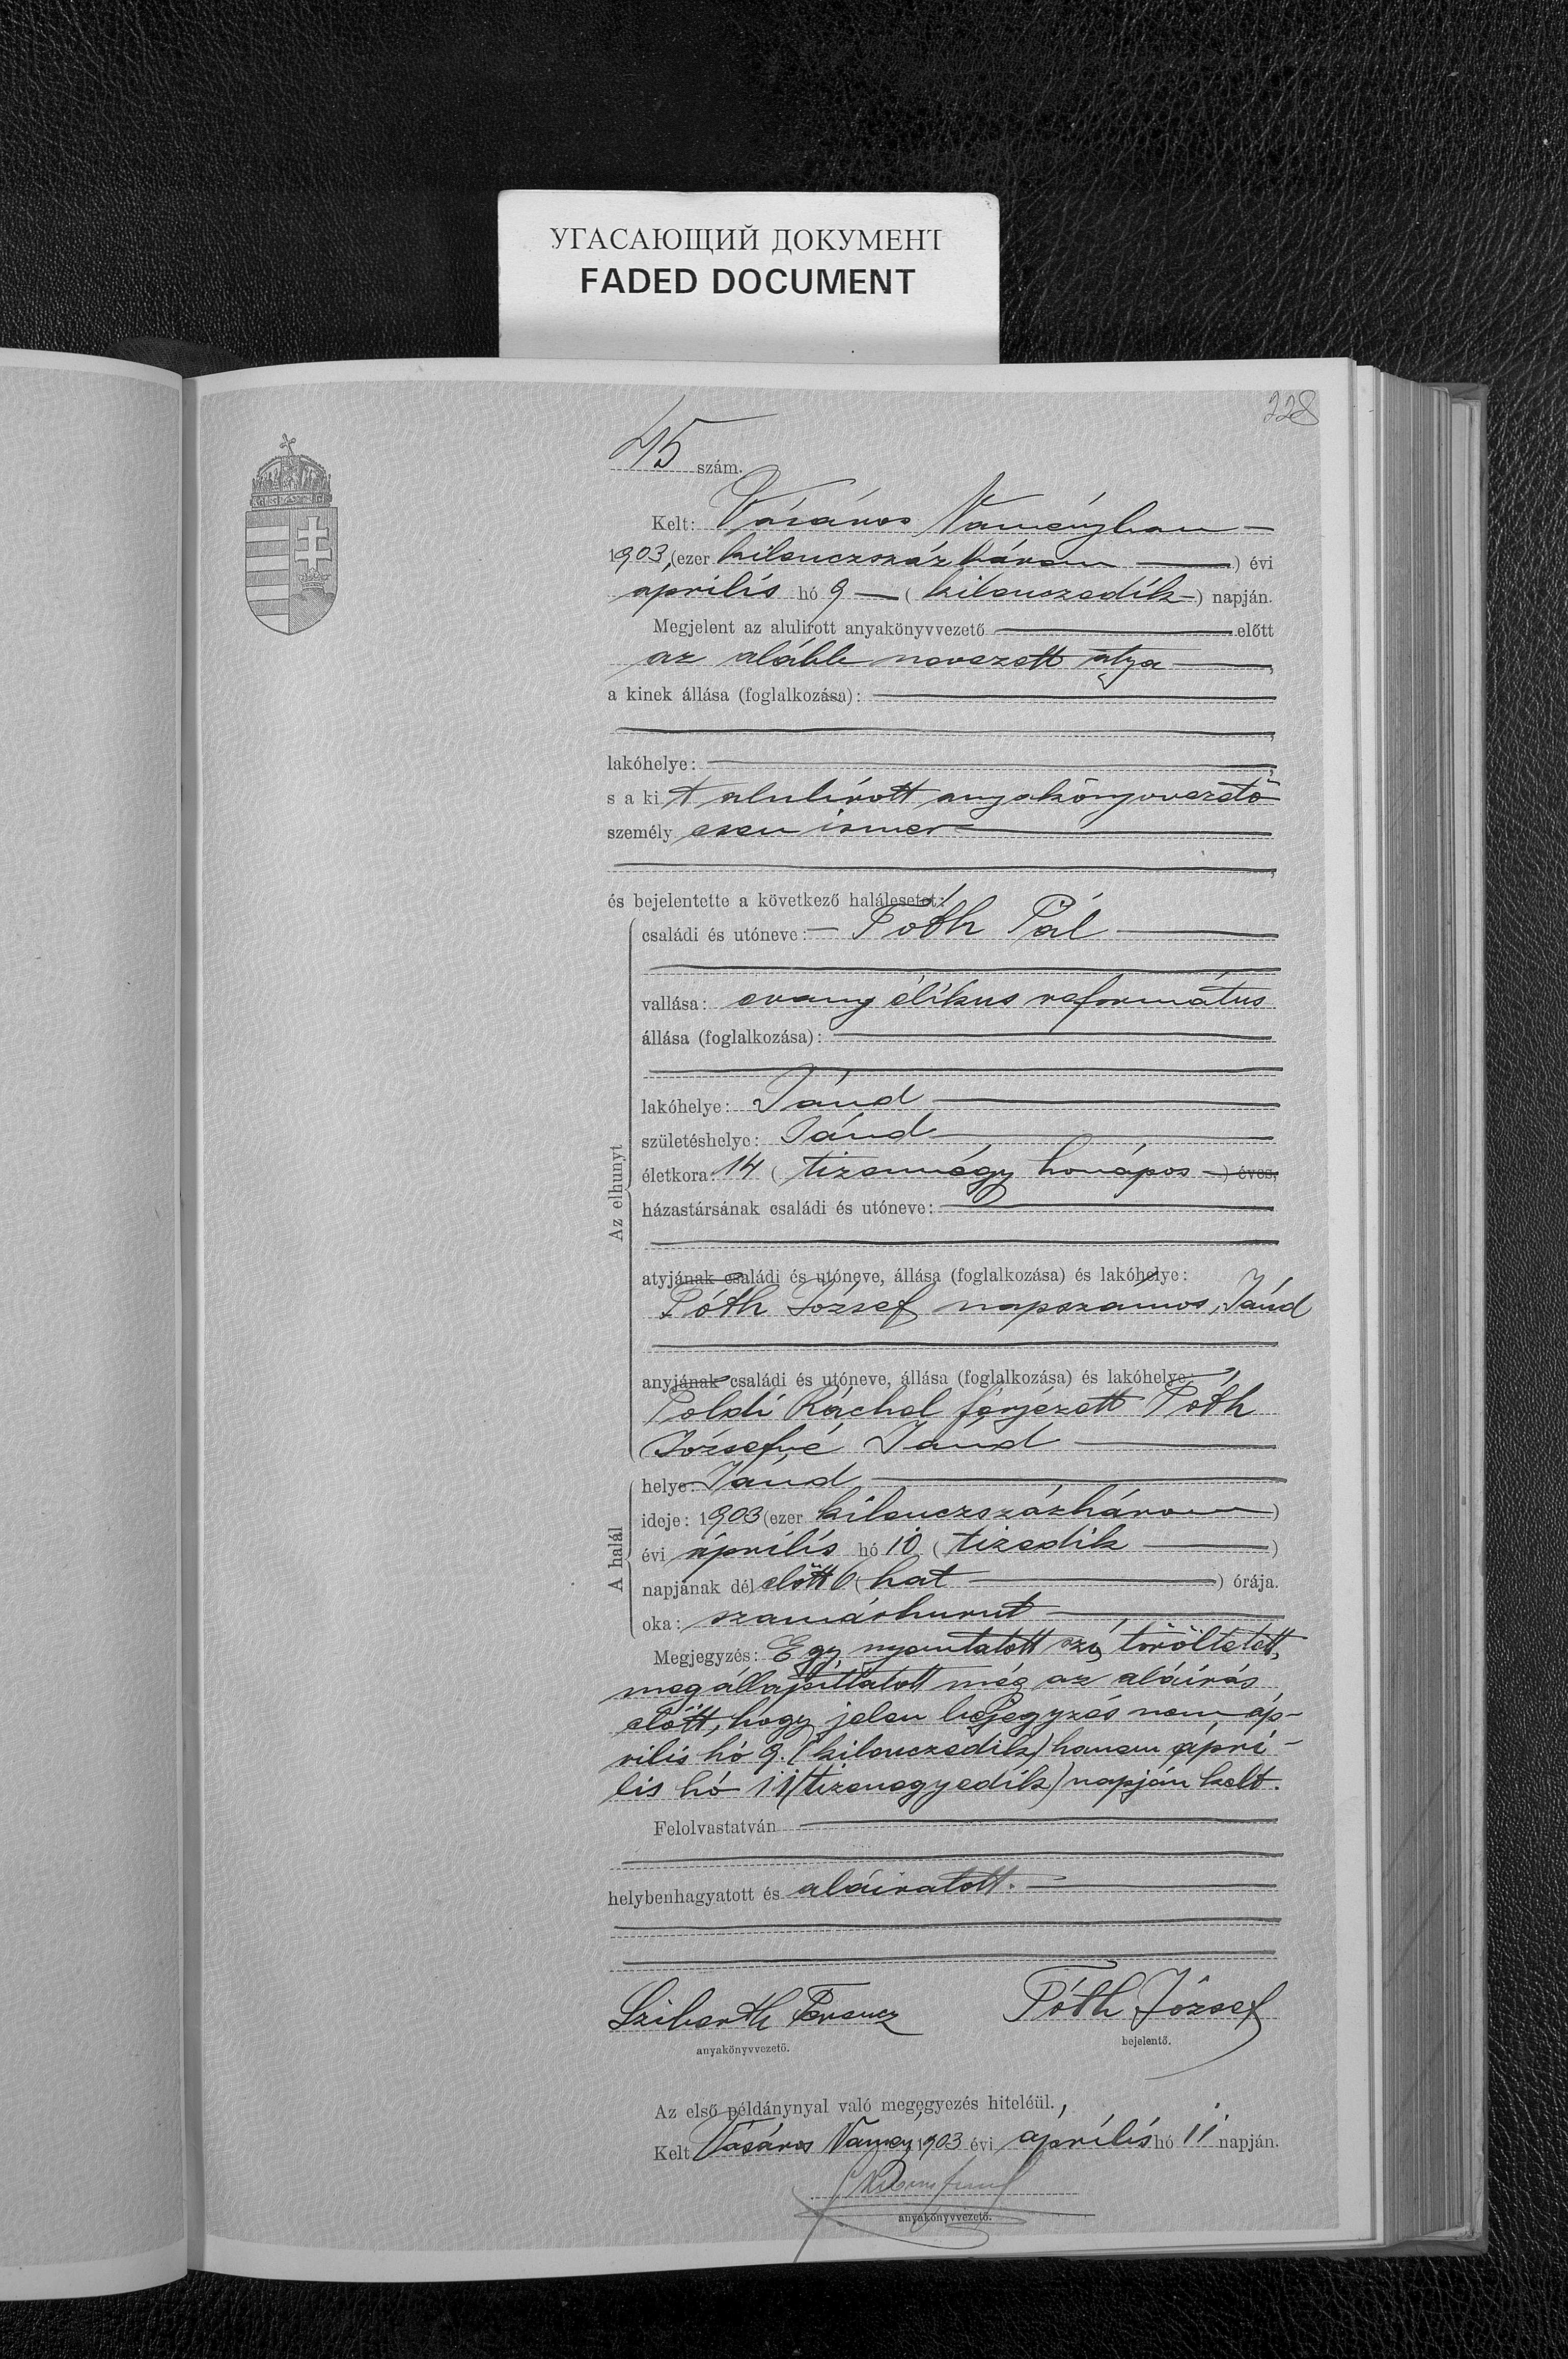 УГАСАЮЩИЙ ДОКУМЕНТ
FADED DOCUMENT
228
45 szám.
Kelt: Vásáros Naményban
1903, (ezer kilenczszáz három ) évi
április hó 9 ( kilenczedik ) napján.
Megjelent az alulirott anyakönyvvezető előtt
az alább nevezett atya ,
a kinek állása (foglalkozása):
,
lakóhelye: ,
s a ki t alulírott anyakönyvvezető
személy esen ismer
,
és bejelentette a következő halálesetet:
Az elhunyt
családi és utóneve: Tóth Pál
vallása: evangélikus református
állása (foglalkozása):
lakóhelye: Jánd
születéshelye: Jánd
életkora: 14 ( tizennégy hónapos ) éves,
házastársának családi és utóneve:
atyjának családi és utóneve, állása (foglalkozása) és lakóhelye:
Tóth József napszámos, Jánd
anyjának családi és utóneve, állása (foglalkozása) és lakóhelye:
Poldi Ráchel férjezett Tóth
Józsefné Jánd
A halál
helye: Jánd
ideje: 1903 (ezer kilenczszázhárom )
évi április hó 10 ( tizedik )
napjának dél előtt 6 ( hat ) órája.
oka: szamárhurut
Megjegyzés: Egy nyomtatott szó töröltetett,
megállapíttatott még az aláírás
előtt, hogy jelen bejegyzés nem áp-
rilis hó 9. (kilenczedik) hanem ápri-
lis hó 11 (tizenegyedik) napján kelt.
Felolvastatván
helybenhagyatott és aláiratott.
Tóth József
anyakönyvvezető.
bejelentő.
Az első példánynyal való megegyezés hiteléül.,
Kelt Vásáros Namény, 1903 évi április hó 11 napján.
anyakönyvvezető.